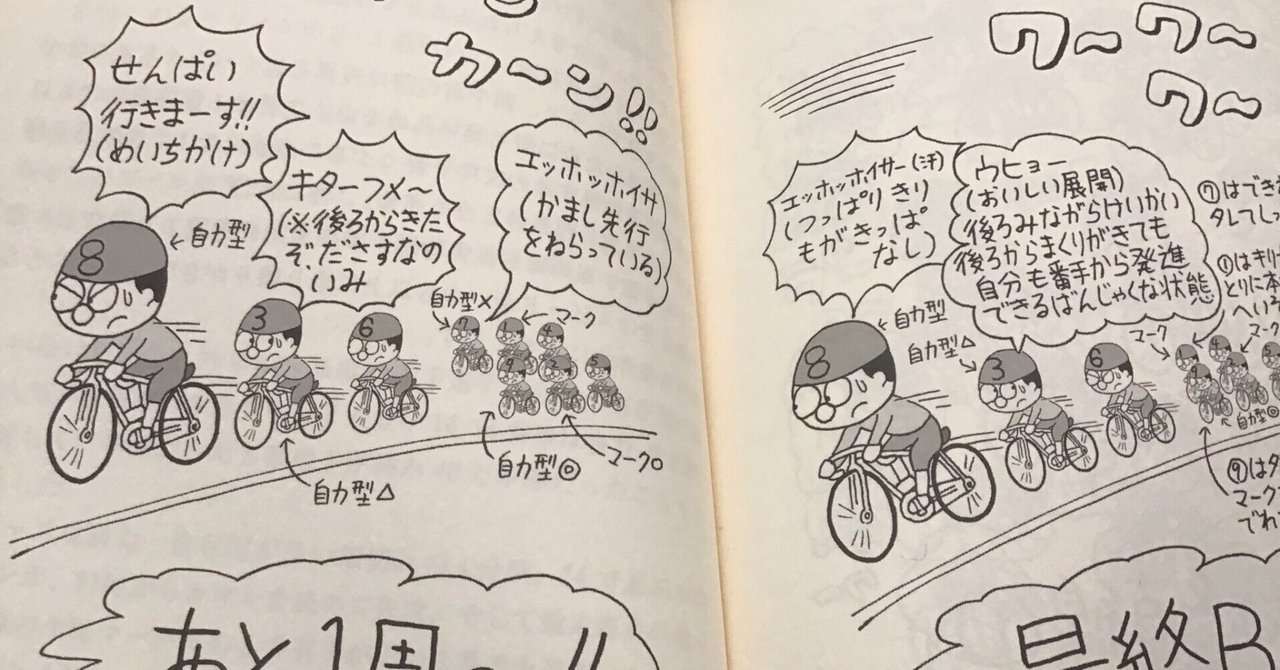 カーン!!
せんぱい
行きまーす!!
(めいちかけ)
←自力型
キターフメ～
(※後ろからきた
ぞださすなの
いみ
エッホッホイサ
(かまし先行
をねらっている)
自力型×
マーク
8
3
6
7
1
4
9
2
5
自力型△
自力型◎
マーク○
あと1周
!!
ワ～ワ～
ワ～
エッホッホイサー(汗)
(つっぱりきり
もがきっぱ
なし)
ウヒョー
(おいしい展開)
後ろみながらけいかい
後ろからまくりがきても
自分も番手から発進
できるばんじゃくな状態
⑦はでき
タレてしっ
①はキリ
とりに本
へいそ
マーク
←自力型
自力型△
マーク
8
3
6
自力型◎
⑨はタ
マーク
でわ
最終B